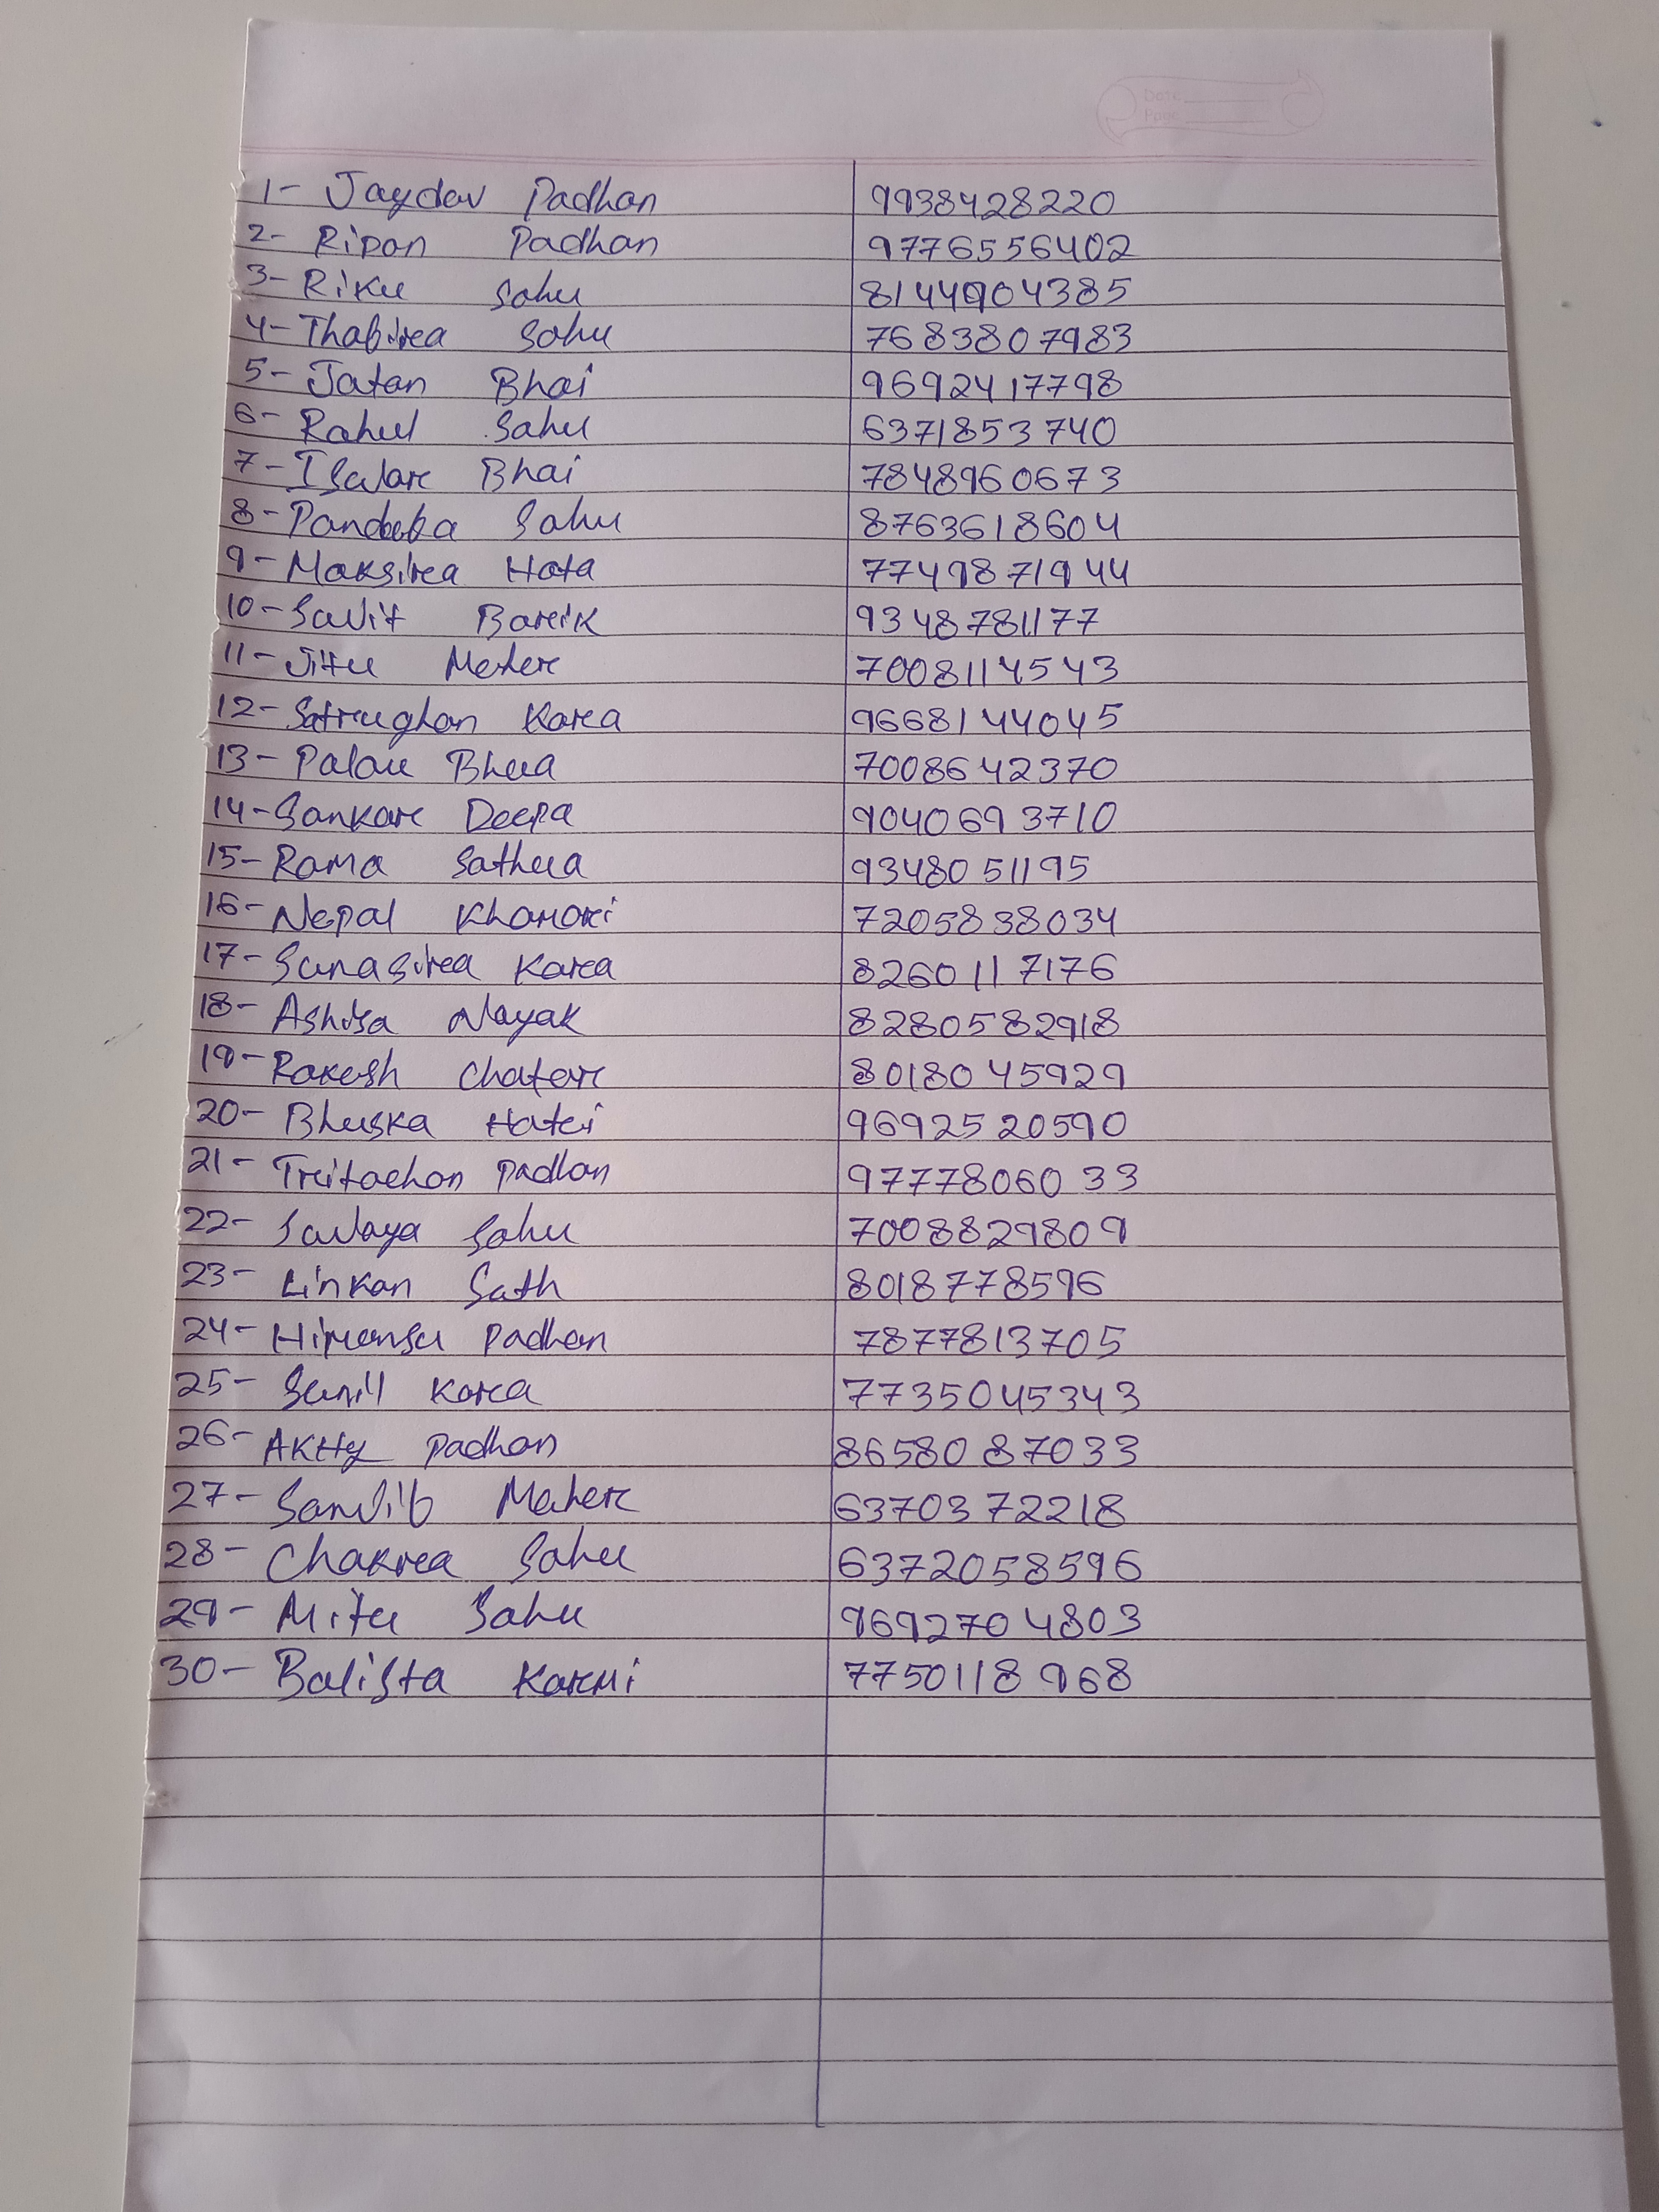 Date
Page
1- Jaydev Padhan 9938428220
2- Ripon Padhan 9776556402
3- Riku Sahu 8144904385
4- Thabira Sahu 7683807983
5- Jatan Bhai 9692417798
6- Rahul Sahu 6371853740
7- Iswar Bhai 7848960673
8- Pandaba Sahu 8763618604
9- Maksira Hota 7749871944
10- Sujit Barik 9348781177
11- Jitu Meher 7008114543
12- Satrughan Kara 9668144045
13- Palau Bhua 7008642370
14- Sankar Deepa 9040693710
15- Rama Sathua 9348051195
16- Nepal Khamari 7205838034
17- Sunasira Kara 8260117176
18- Ashisa Nayak 8280582918
19- Rakesh Chatar 8018045929
20- Bhuska Hatri 9692520590
21- Tritachan Padhan 9777806033
22- Sujaya Sahu 7008829809
23- Linkan Sath 8018778596
24- Himansu Padhan 7877813705
25- Sunil Kara 7735045343
26- AKHy Padhan 8658087033
27- Sanjib Meher 6370372218
28- Chakra Sahu 6372058596
29- Mitu Sahu 9692704803
30- Balista Karmi 7750118968